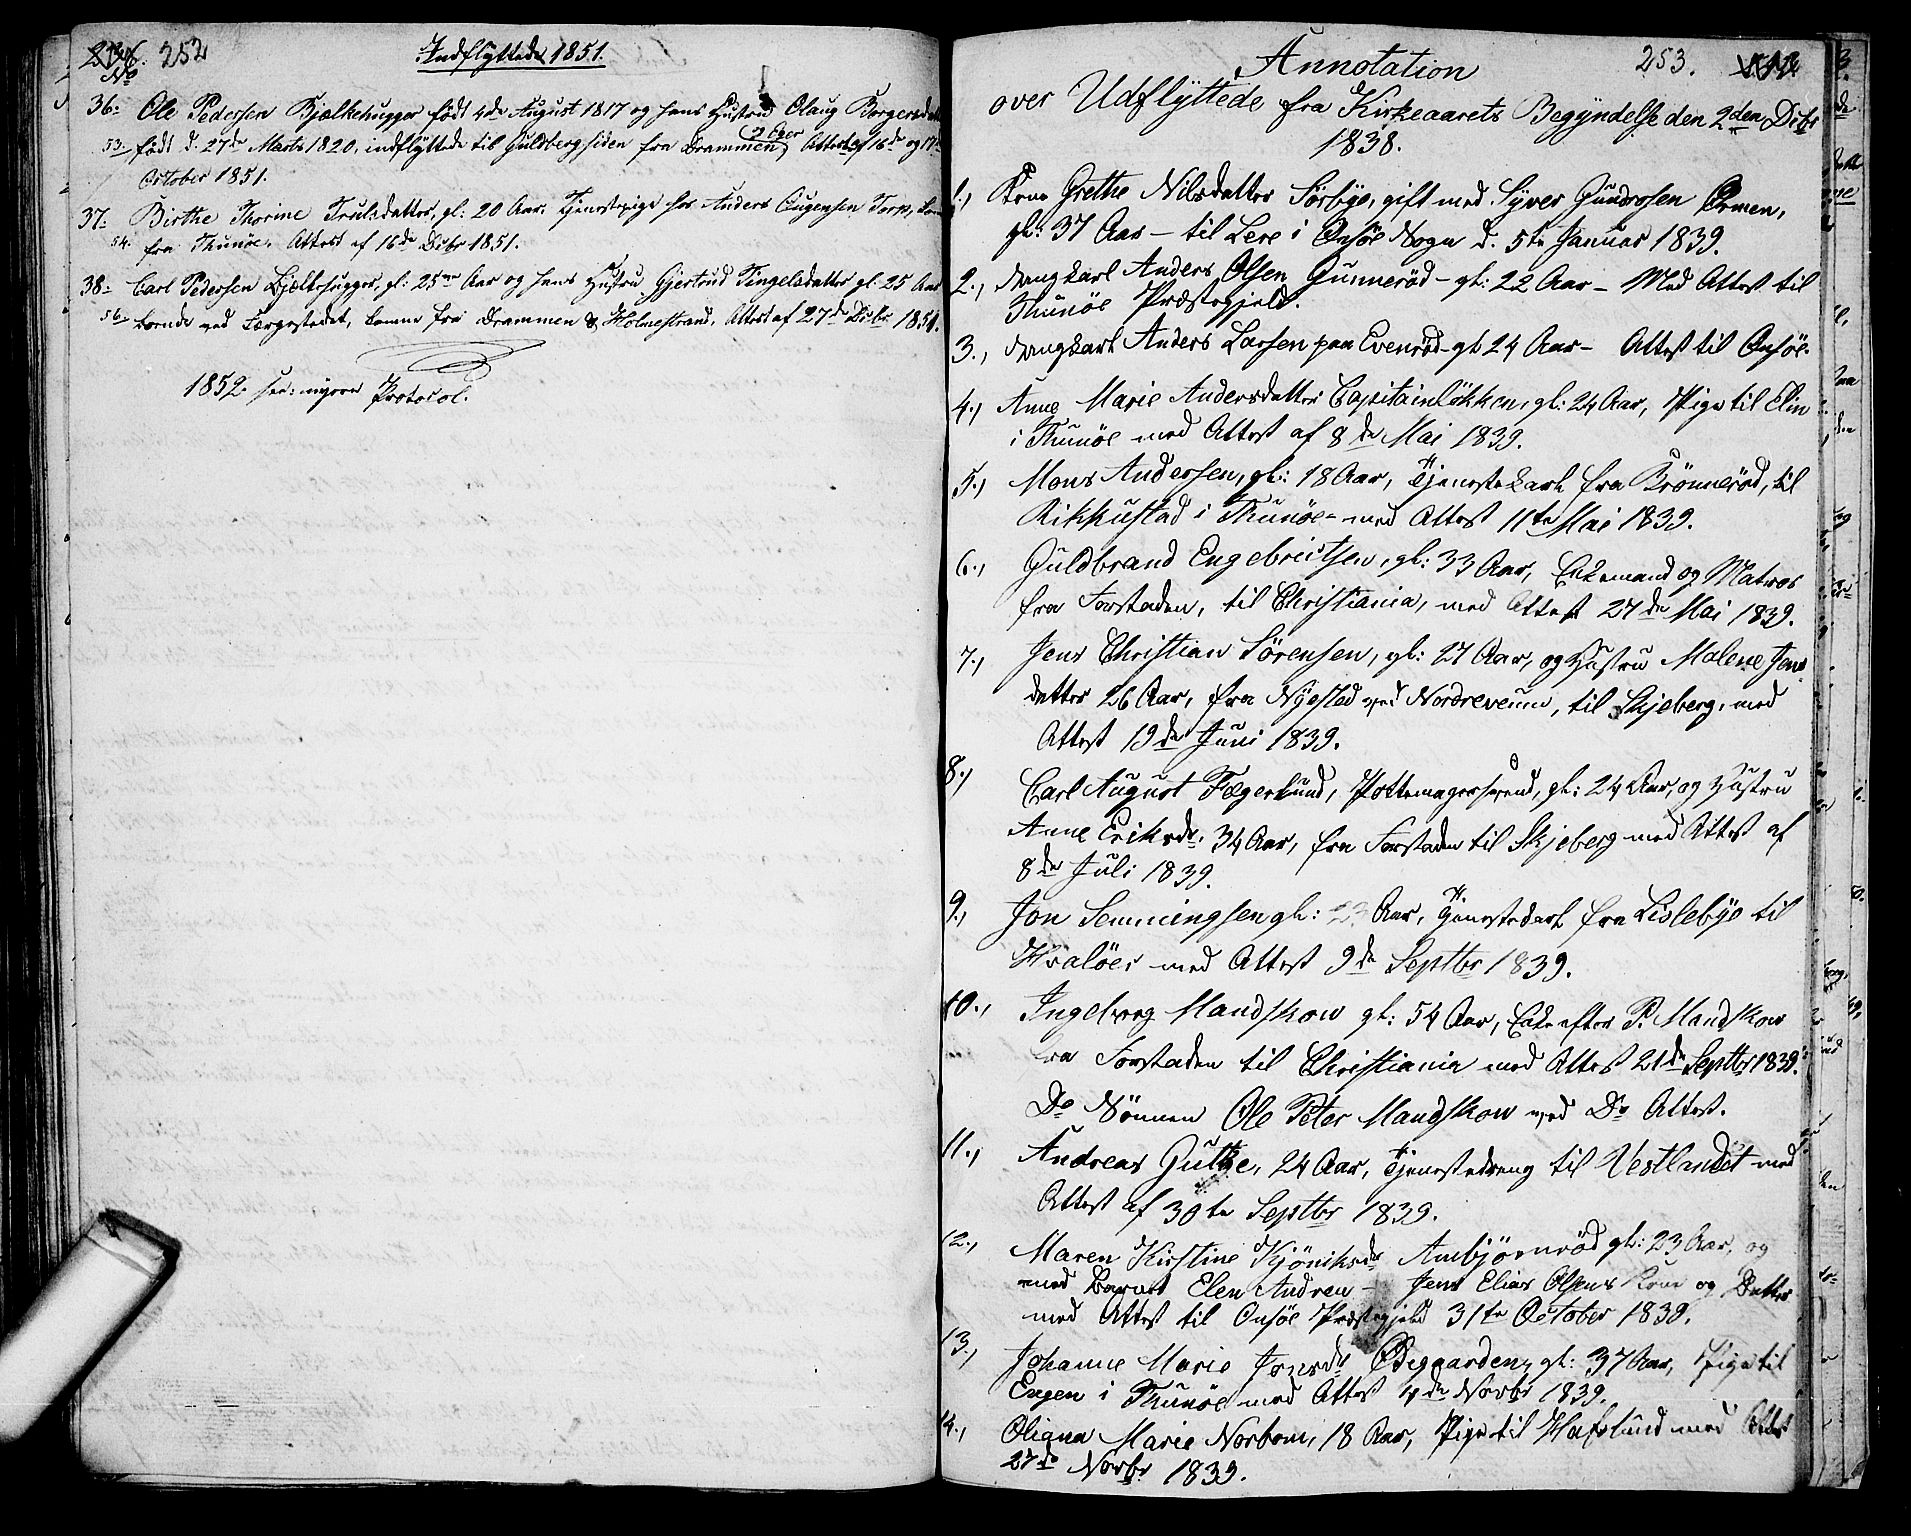 252
Indflyttede 1851.
No
36. Ole Pedersen Bjælkehugger født 4de August 1817 og hans Hustru Olaug Borgersdatter
53. født d. 27de Marts 1820, indflyttede til Guldbergsiden fra Drammen, Attest af 16de og 17de
October 1851.
37. Birthe Thorine Truelsdatter, gl: 20 Aar, Tjenestepige hos Anders Torp,
54. fra Thunöe, Attest af 16de Decbr 1851.
38. Carl Pedersen Bjælkehugger, gl: 25 Aar og hans Hustru Gjertrud Tingelsdatter gl: 25 Aar
56. boende ved Færgestedet, komne fra Drammen & Holmestrand, Attest af 27de Decbr 1851.
1852. see: nyere Protocol.
Annotation 253.
over Udflyttede fra Kirkeaarets Begyndelse den 2den Decbr
1838.
1., Kone Grethe Nilsdatter Sörbye, gift med Syver Gundrosen Ormen,
gl: 37 Aar – til Lere i Onsöe Sogn d. 5te Januar 1839.
2., Ungkarl Anders Olsen Gunneröd – gl: 22 Aar – Med Attest til
Thunöe Præstegjeld.
3., Ungkarl Anders Larsen paa Evenröd – gl 24 Aar – Attest til Onsöe.
4., Anne Marie Andersdatter Capitainlökken, gl: 24 Aar, Pige til Elin
i Thunöe med Attest af 8de Mai 1839.
5., Mons Andersen, gl: 18 Aar, Tjenestekarl fra Brönneröd, til
Rikkustad i Thunöe – med Attest 11te Mai 1839.
6., Guldbrand Engebreitsen, gl: 33 Aar, Enkemand og Matros
fra Forstaden, til Christiania, med Attest 27de Mai 1839.
7., Jens Christian Sörensen, gl: 27 Aar, og Hustru Malene Jens
datter 26 Aar, fra Nyested ved Nordreveum, til Skjeberg, med
Attest 19de Juni 1839.
8., Carl August Fægerlund, Pottemagersvend, gl: 24 Aar og Hustru
Anne Eriksdr. 34 Aar, fra Forstaden til Skjeberg med Attest af
8de Juli 1839.
9., Jon Semmingsen gl: 23 Aar, Tjenestekarl fra Lislebye til
Hvalöer med Attest 9de Septbr 1839.
10., Ingeborg Mandskow gl: 54 Aar, Enke efter P. Mandskow
fra Forstaden til Christiania med Attest 21de Septbr 1839.
Do Sönnen Ole Peter Mandskow ved Do Attest.
11., Andreas Gutke, 24 Aar, Tjenestedreng til Vestlandet med
Attest af 30te Septbr 1839.
12., Maren Kirstine Kjöniksdr Ambjörnröd gl: 23 Aar, og
med Barnet Elen Andrea – Jens Elias Olsens Kone og Datter
med Attest til Onsöe Præstegjeld 31te October 1839.
13., Johanne Marie Jonsdr Ödegaarden, gl: 37 Aar, Pige til
Engen i Thunöe med Attest 4de Novbr 1839.
14., Oliana Marie Norbom, 18 Aar, Pige til Hafslund med Attest
27de Novbr 1839.